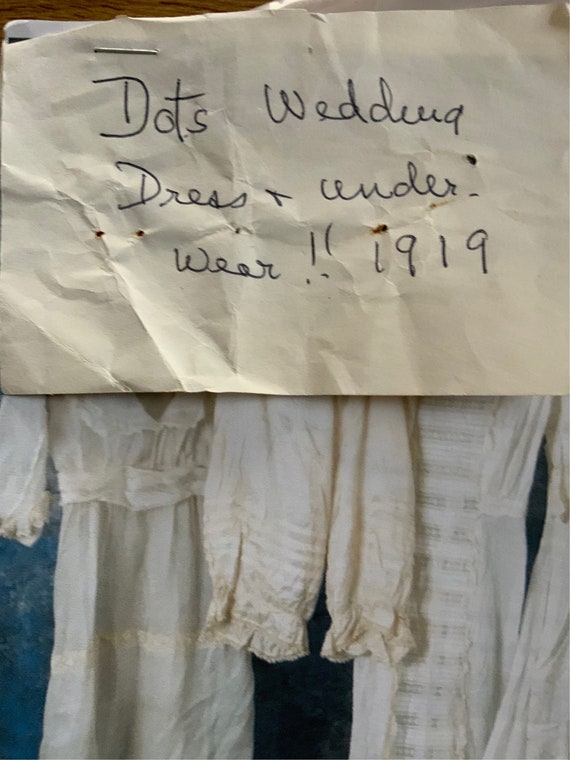 Dots Wedding
Dress + under-
wear!! 1919